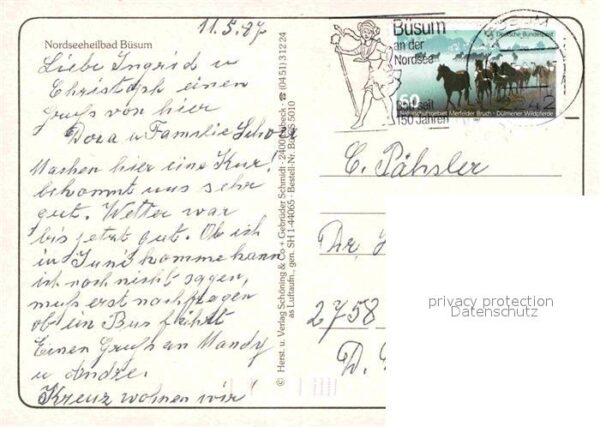 11.5.87
Nordseeheilbad Büsum
Liebe Ingrid u
Christoph einen
Gruß von hier
Dora u Familie
Machen hier eine Kur!
bekommt uns sehr
gut. Wetter war
bis jetzt gut. Ob ich
in Juni komme kann
ich noch nicht sagen,
muß erst nachfragen
ob ein Bus fährt
Einen Gruß an Mandy
u Andre.
Kreuz wohnen wir
© Herst. u. Verlag Schöning & Co + Gebrüder Schmidt · 2400 Lübeck · ☎ (04 51) 3 12 24
as Luftaufn., gen. SH 1-44065 · Bestell-Nr. Büs 5010
Büsum
an der
Nordsee
seit
150 Jahren
Deutsche Bundespost
60
Naturschutzgebiet Merfelder Bruch · Dülmener Wildpferde
C. Pähsler
2758
privacy protection
Datenschutz